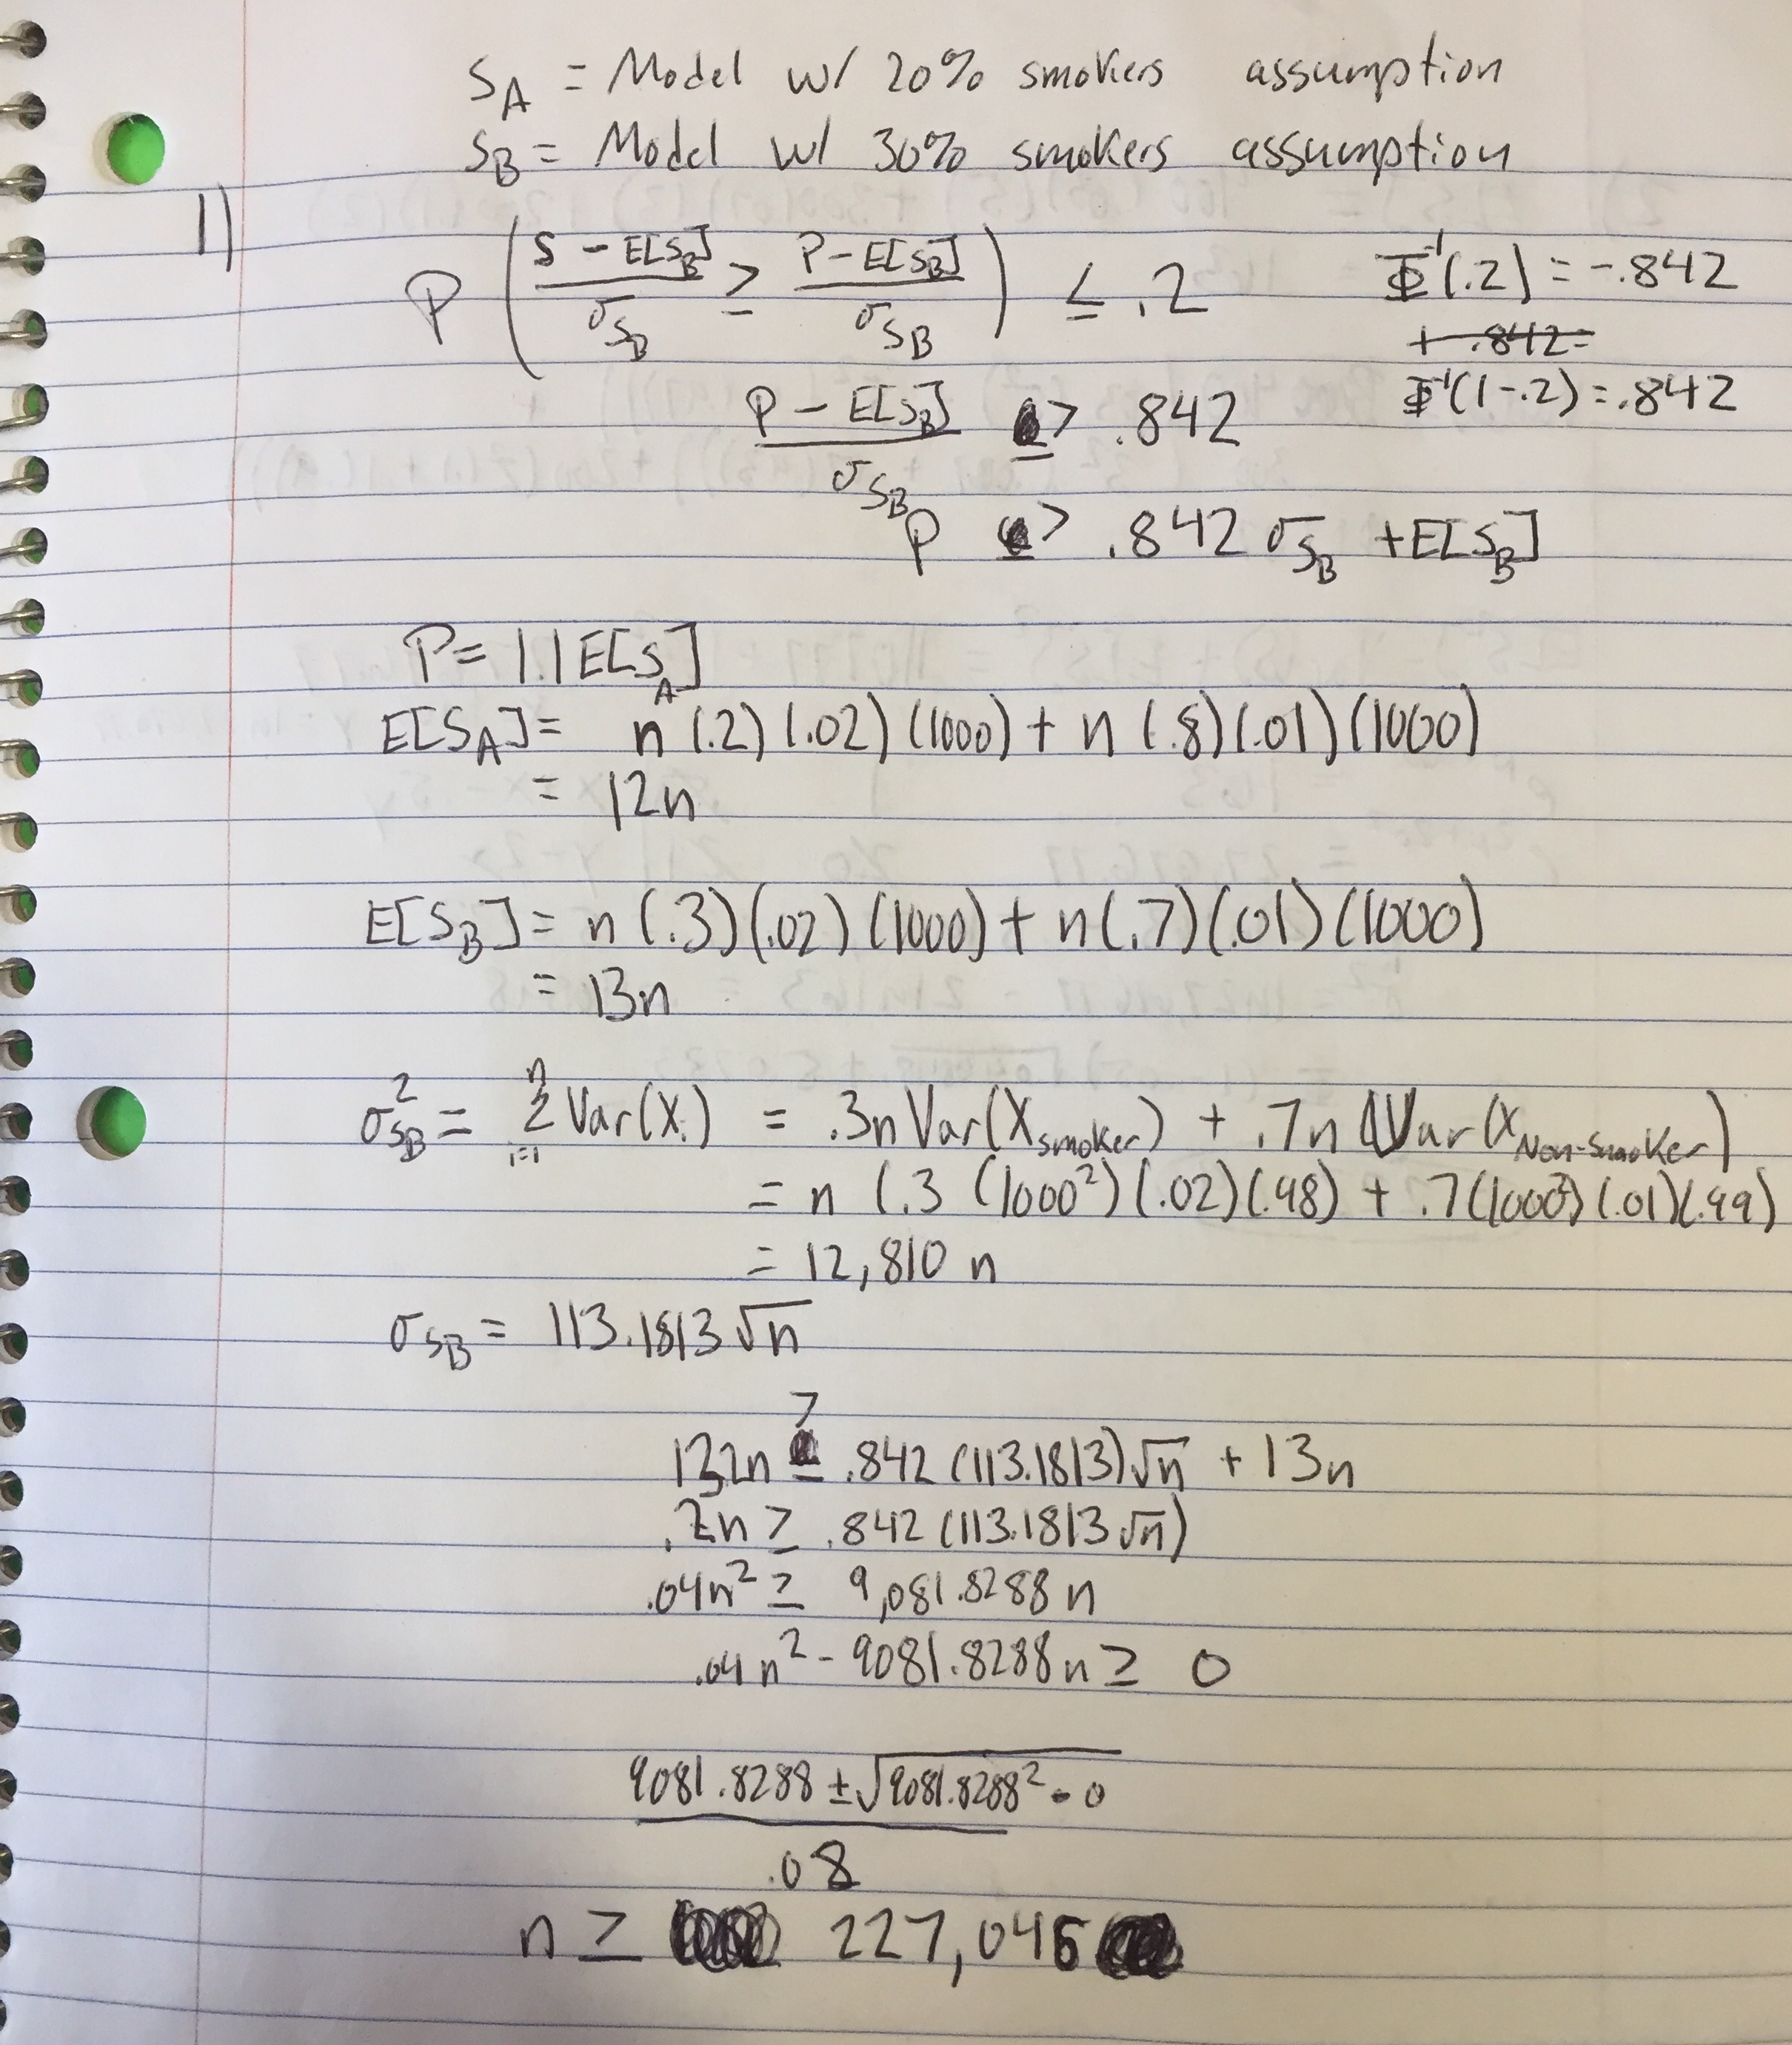 S_A = Model w/ 20% smokers assumption
S_B = Model w/ 30% smokers assumption
1)
P ( (S - E[S_B])/σ_S_B ≥ (P - E[S_B])/σ_S_B ) ≤ .2
Φ⁻¹(.2) = -.842
+ .842=
Φ⁻¹(1-.2) = .842
(P - E[S_B])/σ_S_B ≥ .842
P ≥ .842 σ_S_B + E[S_B]
P = 1.1 E[S_A]
E[S_A] = n (.2)(.02)(1000) + n (.8)(.01)(1000)
= 12n
E[S_B] = n (.3)(.02)(1000) + n(.7)(.01)(1000)
= 13n
σ²_S_B = Σ_{i=1}^{n} Var(X_i) = .3n Var(X_smoker) + .7n Var(X_Non-smoker)
= n (.3 (1000²)(.02)(.98) + .7(1000²)(.01)(.99)
= 12,810 n
σ_S_B = 113.1813 √n
13.2n ≥ .842 (113.1813)√n + 13n
.2n ≥ .842 (113.1813 √n)
.04n² ≥ 9,081.8288 n
.04 n² - 9081.8288 n ≥ 0
(9081.8288 ± √(9081.8288² - 0))/.08
n ≥ 227,046